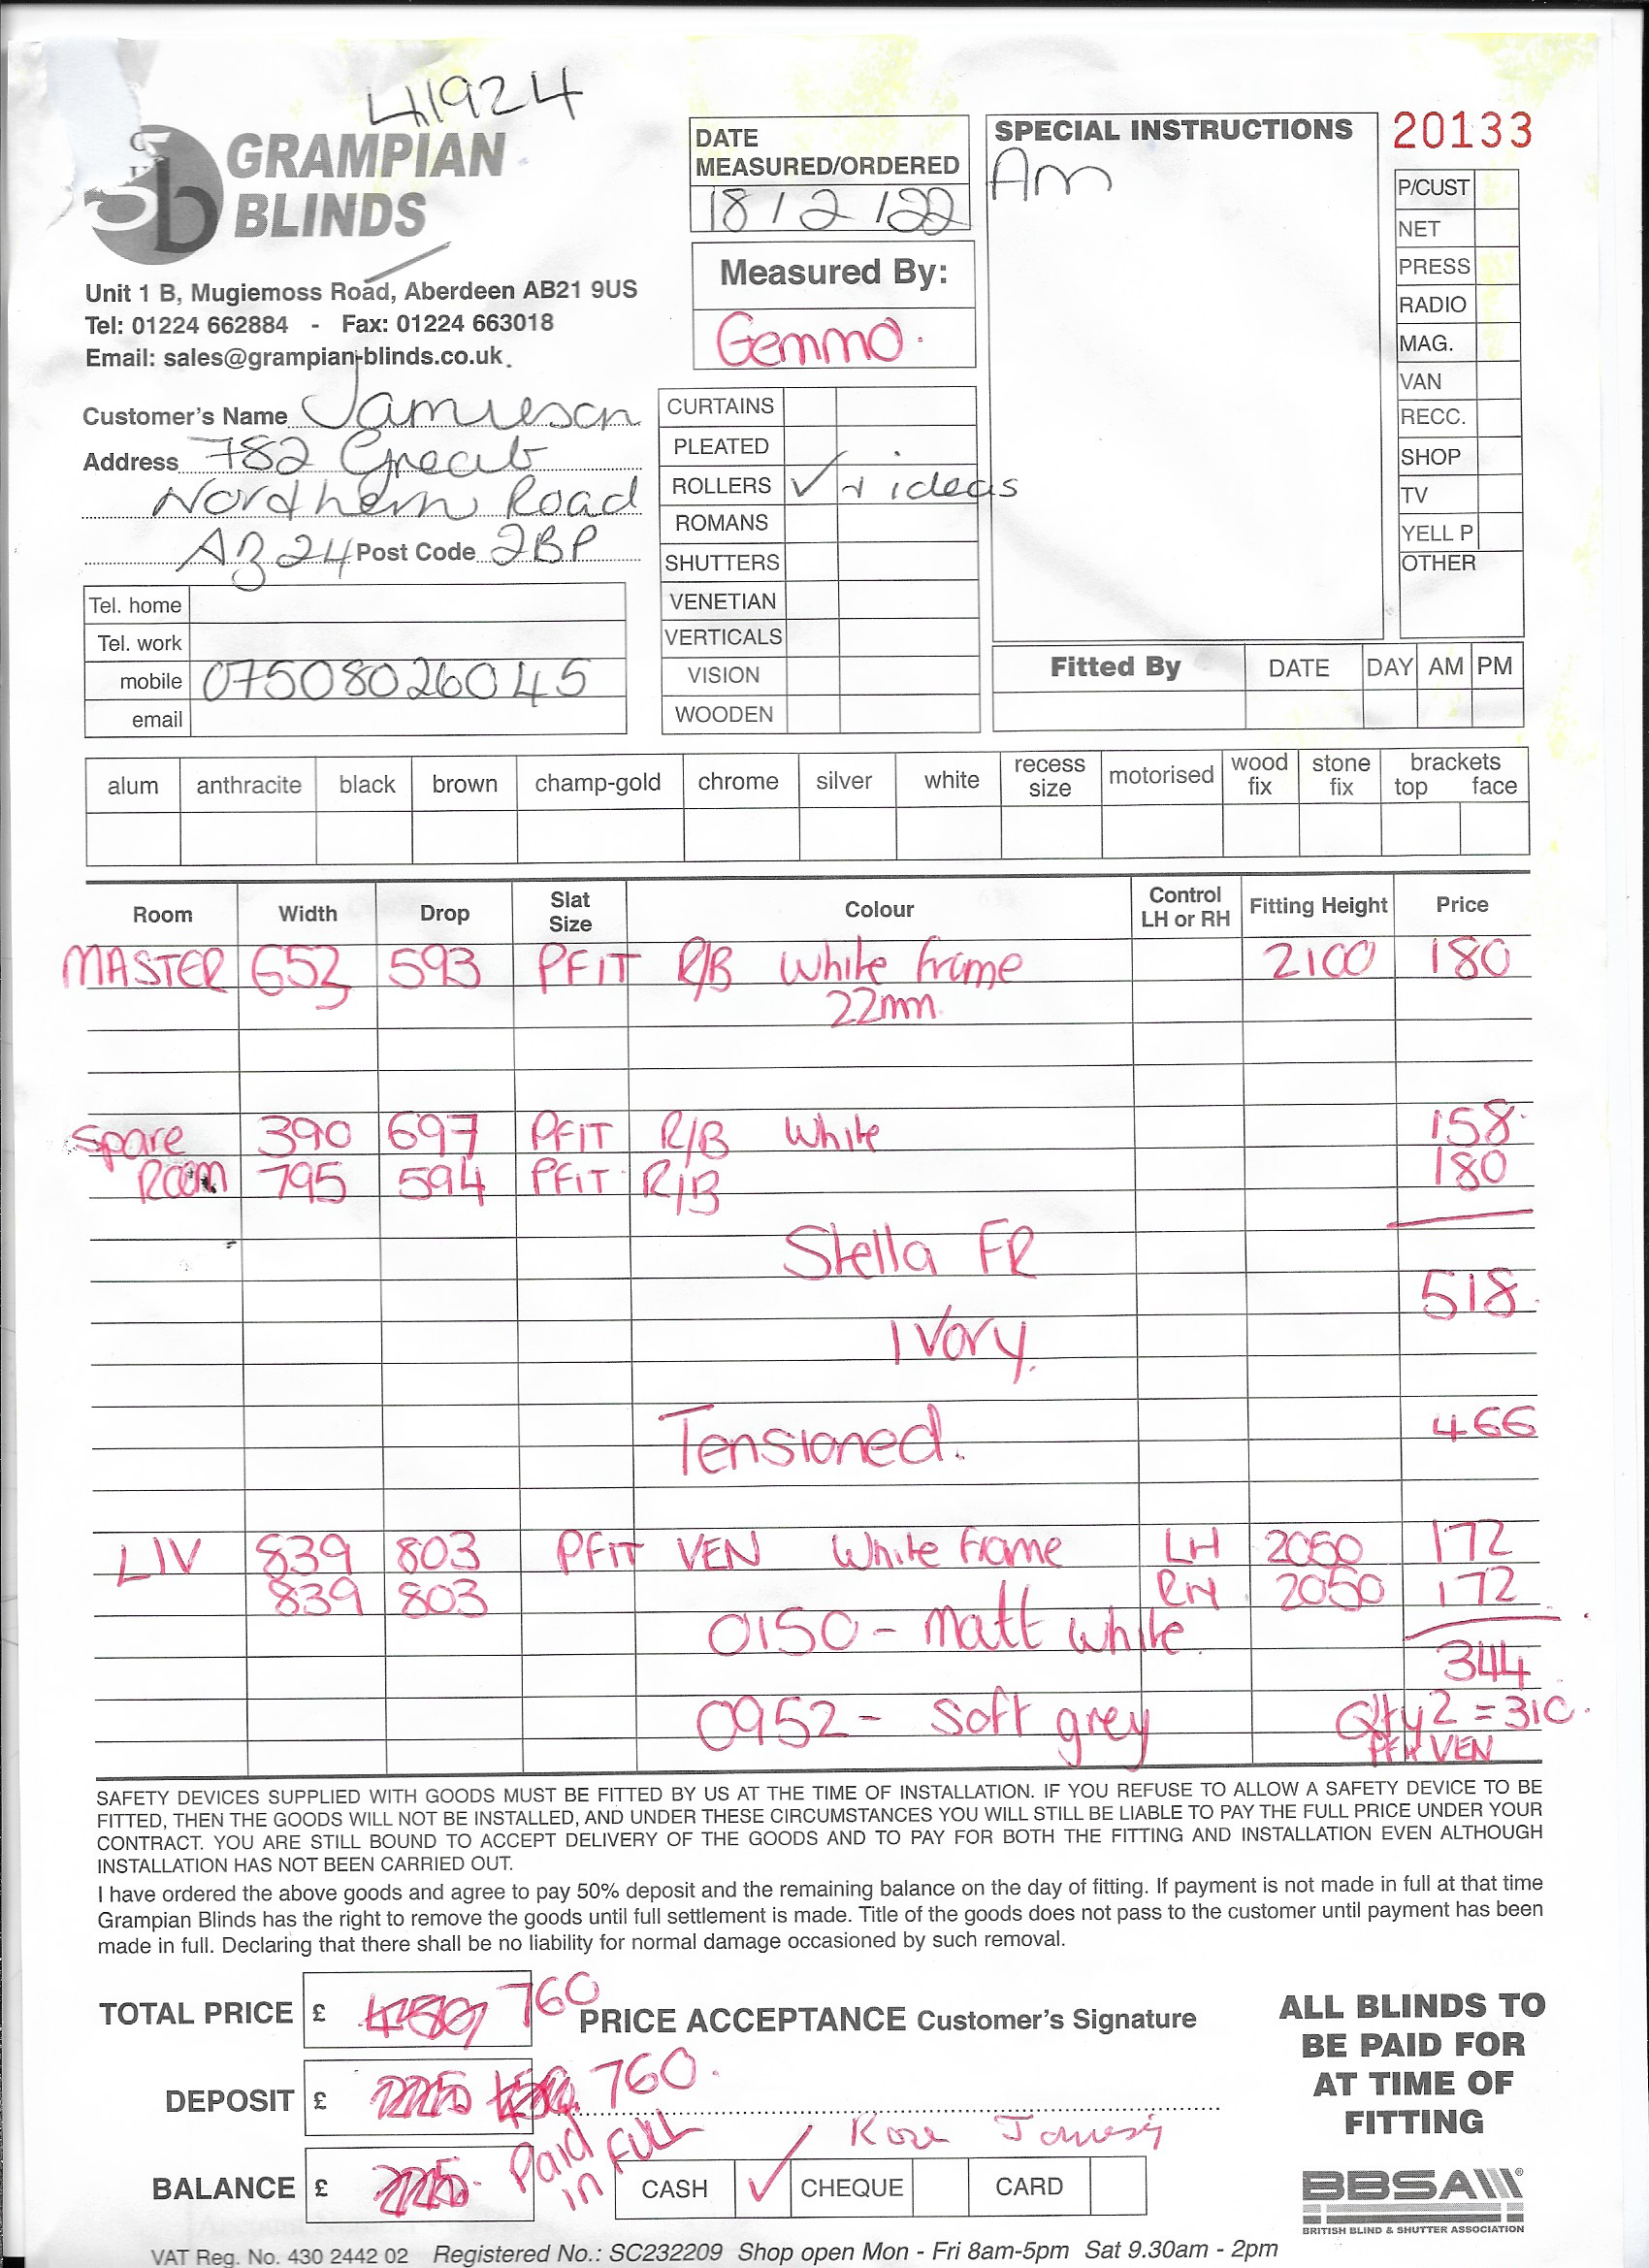 411924
GRAMPIAN
BLINDS
Unit 1 B, Mugiemoss Road, Aberdeen AB21 9US
Tel: 01224 662884 - Fax: 01224 663018
Email: sales@grampian-blinds.co.uk
Customer's Name Jamieson
Address 782 Great
Northern Road
AB24 Post Code 2BP
Tel. home
Tel. work
mobile 07508026045
email
DATE
MEASURED/ORDERED
18/2/22
Measured By:
Gemma.
CURTAINS
PLEATED
ROLLERS ✓ + ideas
ROMANS
SHUTTERS
VENETIAN
VERTICALS
VISION
WOODEN
SPECIAL INSTRUCTIONS
Am
20133
P/CUST
NET
PRESS
RADIO
MAG.
VAN
RECC.
SHOP
TV
YELL P
OTHER
Fitted By DATE DAY AM PM
alum anthracite black brown champ-gold chrome silver white recess size motorised wood fix stone fix brackets top face
Room Width Drop Slat Size Colour Control LH or RH Fitting Height Price
MASTER 652 593 PFIT R/B White frame 2100 180
22mm
Spare 390 697 PFIT R/B White 158
Room 795 594 PFIT R/B 180
Stella FR
518
Ivory.
Tensioned. 466
LIV 839 803 PFIT VEN White frame LH 2050 172
839 803 RH 2050 172
0150 - matt white
344
0952 - soft grey Qty 2 = 310.
Pfit VEN
SAFETY DEVICES SUPPLIED WITH GOODS MUST BE FITTED BY US AT THE TIME OF INSTALLATION. IF YOU REFUSE TO ALLOW A SAFETY DEVICE TO BE
FITTED, THEN THE GOODS WILL NOT BE INSTALLED, AND UNDER THESE CIRCUMSTANCES YOU WILL STILL BE LIABLE TO PAY THE FULL PRICE UNDER YOUR
CONTRACT. YOU ARE STILL BOUND TO ACCEPT DELIVERY OF THE GOODS AND TO PAY FOR BOTH THE FITTING AND INSTALLATION EVEN ALTHOUGH
INSTALLATION HAS NOT BEEN CARRIED OUT.
I have ordered the above goods and agree to pay 50% deposit and the remaining balance on the day of fitting. If payment is not made in full at that time
Grampian Blinds has the right to remove the goods until full settlement is made. Title of the goods does not pass to the customer until payment has been
made in full. Declaring that there shall be no liability for normal damage occasioned by such removal.
TOTAL PRICE £ 760
PRICE ACCEPTANCE Customer's Signature
DEPOSIT £ 760.
BALANCE £ Paid in FULL
CASH ✓ CHEQUE CARD
ALL BLINDS TO
BE PAID FOR
AT TIME OF
FITTING
BBSA
BRITISH BLIND & SHUTTER ASSOCIATION
VAT Reg. No. 430 2442 02 Registered No.: SC232209 Shop open Mon - Fri 8am-5pm Sat 9.30am - 2pm